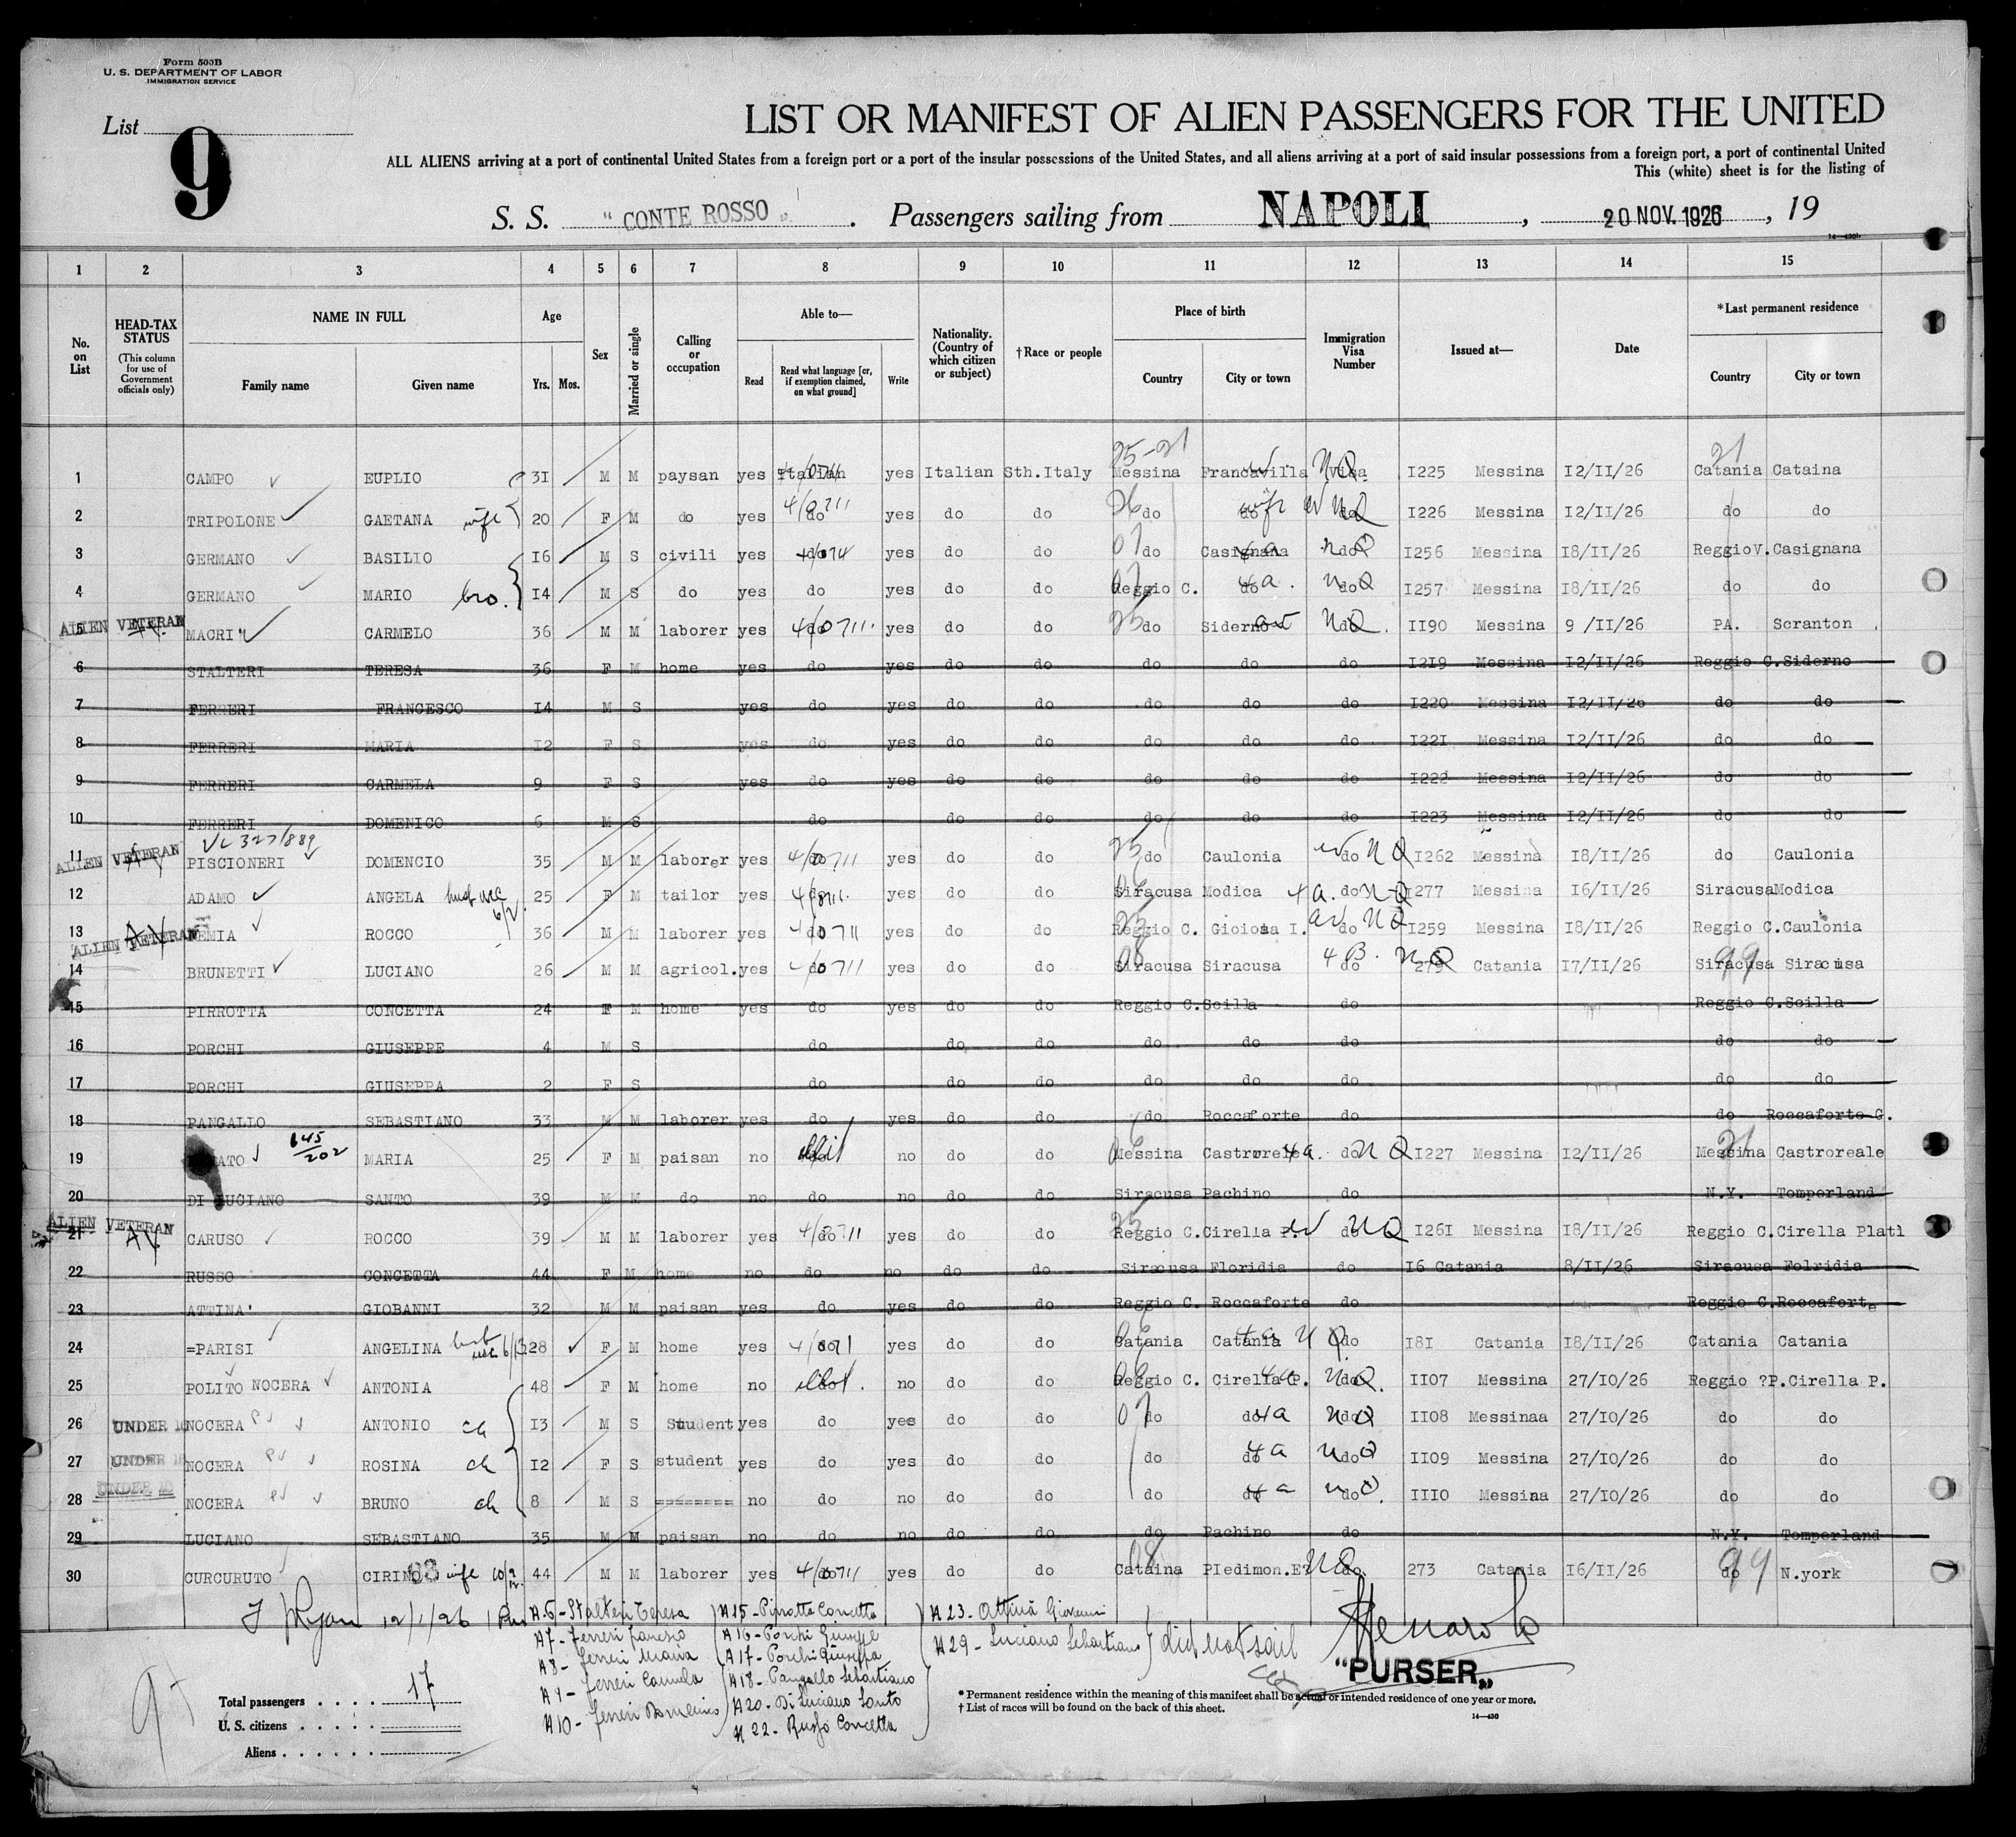 Form 500B
U. S. DEPARTMENT OF LABOR
IMMIGRATION SERVICE
List
9
LIST OR MANIFEST OF ALIEN PASSENGERS FOR THE UNITED
ALL ALIENS arriving at a port of continental United States from a foreign port or a port of the insular possessions of the United States, and all aliens arriving at a port of said insular possessions from a foreign port, a port of continental United
This (white) sheet is for the listing of
S. S. "CONTE ROSSO". Passengers sailing from NAPOLI, 20 NOV. 1926, 19
14—430b
1 2 3 4 5 6 7 8 9 10 11 12 13 14 15
No. on List
HEAD-TAX STATUS
(This column for use of Government officials only)
NAME IN FULL
Family name
Given name
Age
Yrs. Mos.
Sex
Married or single
Calling or occupation
Able to—
Read
Read what language [or, if exemption claimed, on what ground]
Write
Nationality. (Country of which citizen or subject)
†Race or people
Place of birth
Country
City or town
Immigration Visa Number
Issued at—
Date
*Last permanent residence
Country
City or town
25-21 21
1 CAMPO EUPLIO 3I M M paysan yes Italian yes Italian Sth.Italy Messina Francavilla Visa NQ I225 Messina I2/II/26 Catania Cataina
2 TRIPOLONE GAETANA wife 20 F M do yes do yes do do do do do NQ I226 Messina I2/II/26 do do
3 GERMANO BASILIO I6 M S civili yes do yes do do do Casignana do NQ I256 Messina I8/II/26 ReggioV. Casignana
4 GERMANO MARIO bro. I4 M S do yes do yes do do Reggio C. do 4a. do NQ I257 Messina I8/II/26 do do
ALIEN VETERAN
5 MACRI" CARMELO 36 M M laborer yes do yes do do do Siderno do NQ II90 Messina 9 /II/26 PA. Scranton
6 STALTERI TERESA 36 F M home yes do yes do do do do do I2I9 Messina I2/II/26 Reggio C. Siderno
7 FERRERI FRANCESCO I4 M S yes do yes do do do do do I220 Messina I2/II/26 do do
8 FERRERI MARIA I2 F S yes do yes do do do do do I22I Messina I2/II/26 do do
9 FERRERI CARMELA 9 F S yes do yes do do do do do I222 Messina I2/II/26 do do
10 FERRERI DOMENICO 6 M S do do do do do do I223 Messina I2/II/26 do do
ALIEN VETERAN
11 PISCIONERI DOMENCIO 35 M M laborer yes do yes do do do Caulonia do NQ I262 Messina I8/II/26 do Caulonia
12 ADAMO ANGELA 25 F M tailor yes do yes do do Siracusa Modica 4a. do NQ I277 Messina I6/II/26 Siracusa Modica
ALIEN VETERAN
13 ROCCO 36 M M laborer yes do yes do do Reggio C. Gioiosa I. do NQ I259 Messina I8/II/26 Reggio C. Caulonia
14 BRUNETTI LUCIANO 26 M M agricol. yes do yes do do Siracusa Siracusa 4B. do NQ 279 Catania I7/II/26 Siracusa Siracusa
15 PIRROTTA CONCETTA 24 F M home yes do yes do do Reggio C. Scilla do Reggio C. Scilla
16 PORCHI GIUSEPPE 4 M S do do do do do do do do
17 PORCHI GIUSEPPA 2 F S do do do do do do do do
18 PANGALLO SEBASTIANO 33 M M laborer yes do yes do do do Roccaforte do do Roccaforte G.
645/202
19 MARIA 25 F M paisan no do no do do Messina 4a. do NQ I227 Messina I2/II/26 Messina Castroreale
20 DI LUCIANO SANTO 39 M M do no do no do do Siracusa Pachino do N.Y. Tomperland
ALIEN VETERAN
21 CARUSO ROCCO 39 M M laborer yes do yes do do Reggio C. Cirella P. do NQ I26I Messina I8/II/26 Reggio C. Cirella Platì
22 RUSSO CONCETTA 44 F M home no do no do do Siracusa Floridia do I6 Catania 8/II/26 Siracusa Folridia
23 ATTINA' GIOBANNI 32 M M paisan yes do yes do do Reggio C. Roccaforte do Reggio C. Roccaforte
24 =PARISI ANGELINA 28 F M home yes do yes do do Catania Catania do I8I Catania I8/II/26 Catania Catania
25 POLITO NOCERA ANTONIA 48 F M home no do no do do Reggio C. Cirella P. do NQ. II07 Messina 27/IO/26 Reggio ?P. Cirella P.
26 UNDER NOCERA ANTONIO ch I3 M S Student yes do yes do do do do 4a do NQ II08 Messinaa 27/IO/26 do do
27 UNDER NOCERA ROSINA ch I2 F S student yes do yes do do do do 4a do NQ II09 Messina 27/IO/26 do do
28 UNDER NOCERA BRUNO ch 8 M S ======== no do no do do do do 4a do III0 Messina 27/IO/26 do do
29 LUCIANO SEBASTIANO 35 M M paisan no do no do do do Pachino do N.Y. Tomperland
30 CURCURUTO CIRINO wife 44 M M laborer yes do yes do do Cataina PIedimon.E do NQ 273 Catania I6/II/26 do N.york
12/1/26
A 6 - Stalteri Teresa
A 7 - Ferreri Francesco
A 8 - Ferreri Maria
A 9 - Ferreri Carmela
A 10 - Ferreri Domenico
A 15 - Pirrotta Concetta
A 16 - Porchi Giuseppe
A 17 - Porchi Giuseppa
A 18 - Pangallo Sebastiano
A 20 - Di Luciano Santo
A 22 - Russo Concetta
A 23 - Attinà Giovanni
A 29 - Luciano Sebastiano
did not sail
"PURSER"
Total passengers . . . . 17
U. S. citizens . . . . .
Aliens . . . . . .
* Permanent residence within the meaning of this manifest shall be actual or intended residence of one year or more.
† List of races will be found on the back of this sheet.
14—430